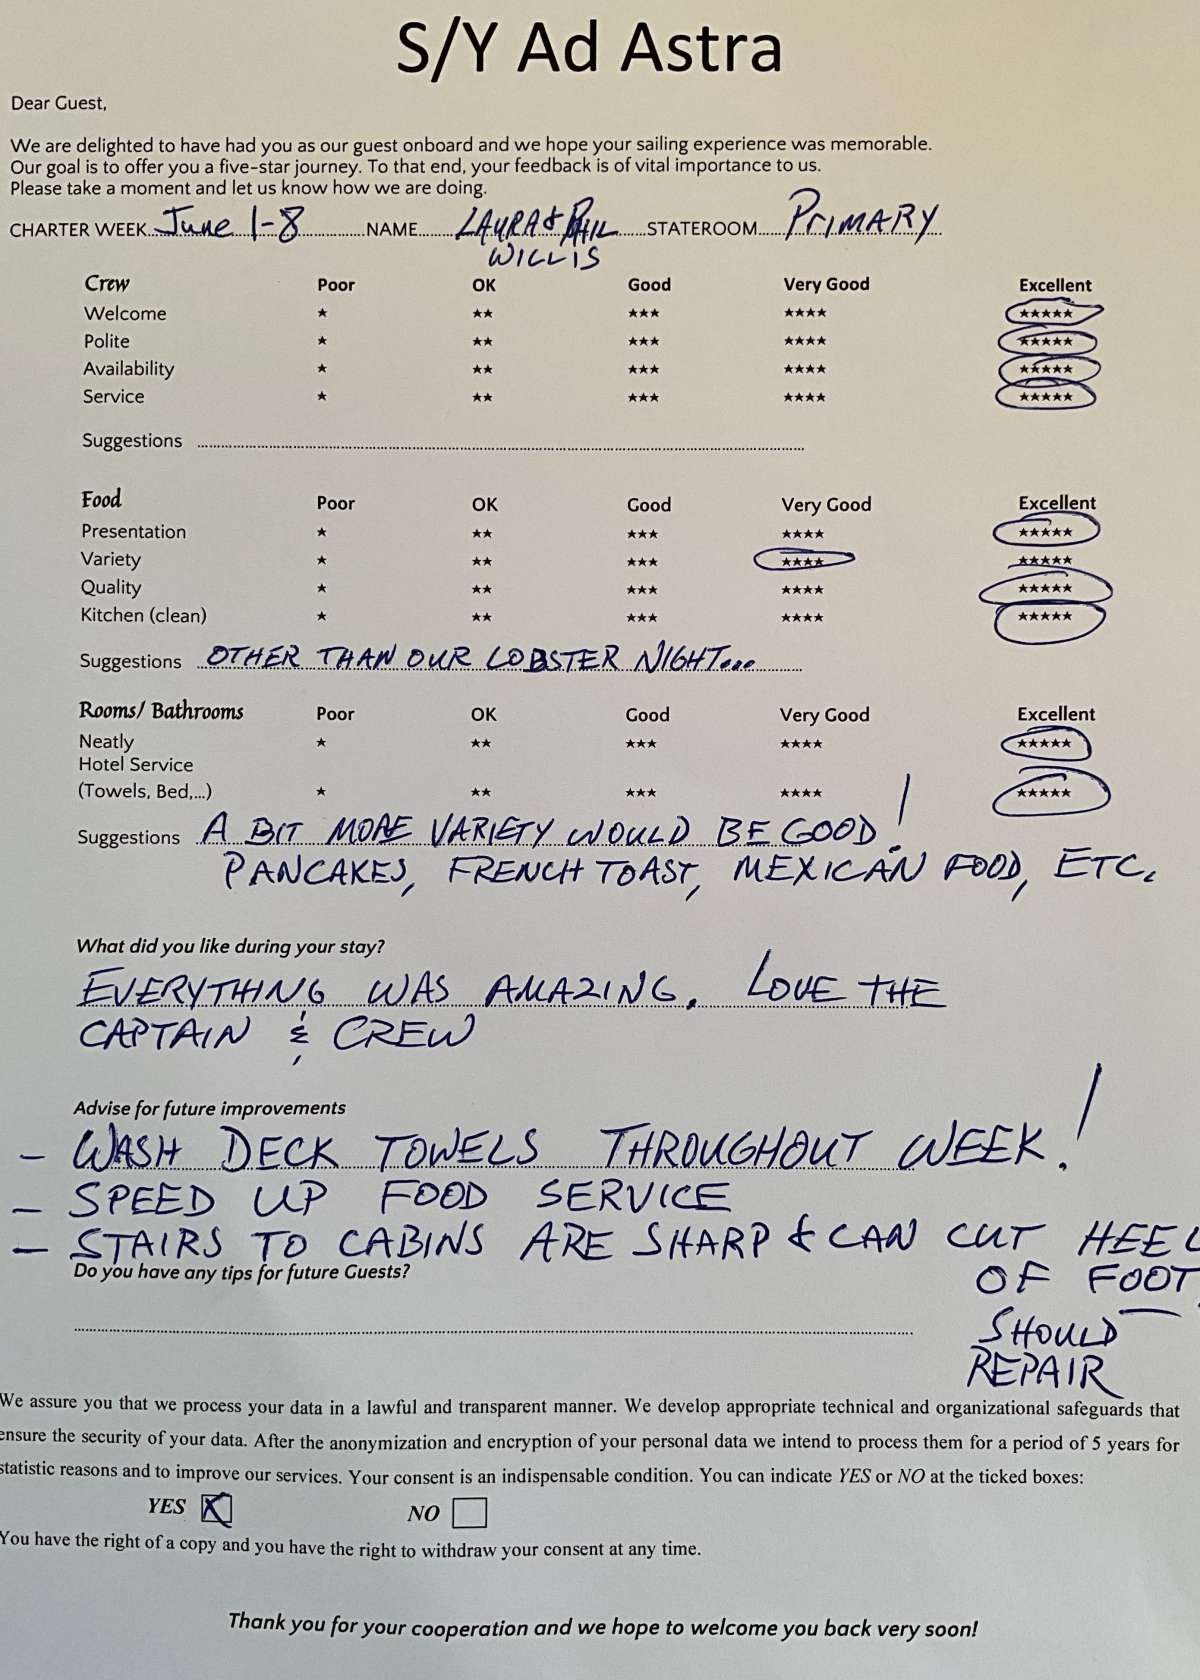 S/Y Ad Astra
Dear Guest,
We are delighted to have had you as our guest onboard and we hope your sailing experience was memorable.
Our goal is to offer you a five-star journey. To that end, your feedback is of vital importance to us.
Please take a moment and let us know how we are doing.
CHARTER WEEK June 1-8 NAME LAURA & PHIL STATEROOM PRIMARY
WILLIS
Crew Poor OK Good Very Good Excellent
Welcome ★ ★★ ★★★ ★★★★ ★★★★★
Polite ★ ★★ ★★★ ★★★★ ★★★★★
Availability ★ ★★ ★★★ ★★★★ ★★★★★
Service ★ ★★ ★★★ ★★★★ ★★★★★
Suggestions
Food Poor OK Good Very Good Excellent
Presentation ★ ★★ ★★★ ★★★★ ★★★★★
Variety ★ ★★ ★★★ ★★★★ ★★★★★
Quality ★ ★★ ★★★ ★★★★ ★★★★★
Kitchen (clean) ★ ★★ ★★★ ★★★★ ★★★★★
Suggestions OTHER THAN OUR LOBSTER NIGHT...
Rooms/ Bathrooms Poor OK Good Very Good Excellent
Neatly ★ ★★ ★★★ ★★★★ ★★★★★
Hotel Service
(Towels, Bed,...) ★ ★★ ★★★ ★★★★ ★★★★★
Suggestions A BIT MORE VARIETY WOULD BE GOOD!
PANCAKES, FRENCH TOAST, MEXICAN FOOD, ETC.
What did you like during your stay?
EVERYTHING WAS AMAZING. LOVE THE
CAPTAIN & CREW
Advise for future improvements
- WASH DECK TOWELS THROUGHOUT WEEK!
- SPEED UP FOOD SERVICE
- STAIRS TO CABINS ARE SHARP & CAN CUT HEEL
OF FOOT.
Do you have any tips for future Guests?
SHOULD
REPAIR
We assure you that we process your data in a lawful and transparent manner. We develop appropriate technical and organizational safeguards that
ensure the security of your data. After the anonymization and encryption of your personal data we intend to process them for a period of 5 years for
statistic reasons and to improve our services. Your consent is an indispensable condition. You can indicate YES or NO at the ticked boxes:
YES X NO
You have the right of a copy and you have the right to withdraw your consent at any time.
Thank you for your cooperation and we hope to welcome you back very soon!